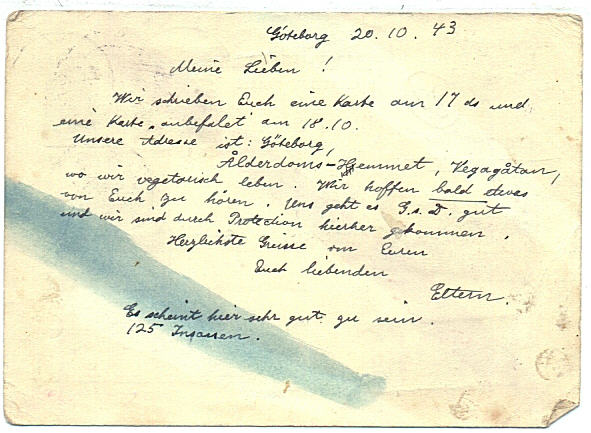 Göteborg 20.10.43
Meine Lieben!
Wir schrieben Euch eine Karte am 17 ds und
eine Karte "anbefalet" am 18.10.
Unsere Adresse ist: Göteborg,
Ålderdoms-Hjemmet, Vegagåtan,
wo wir vegetarisch leben. Wir hoffen bald etwas
von Euch zu hören. Uns geht es G.s.D. gut
und wir sind durch Protection hierher gekommen.
Herzlichste Grüsse von Euren
Euch liebenden
Eltern.
Es scheint hier sehr gut zu sein.
125 Insassen.